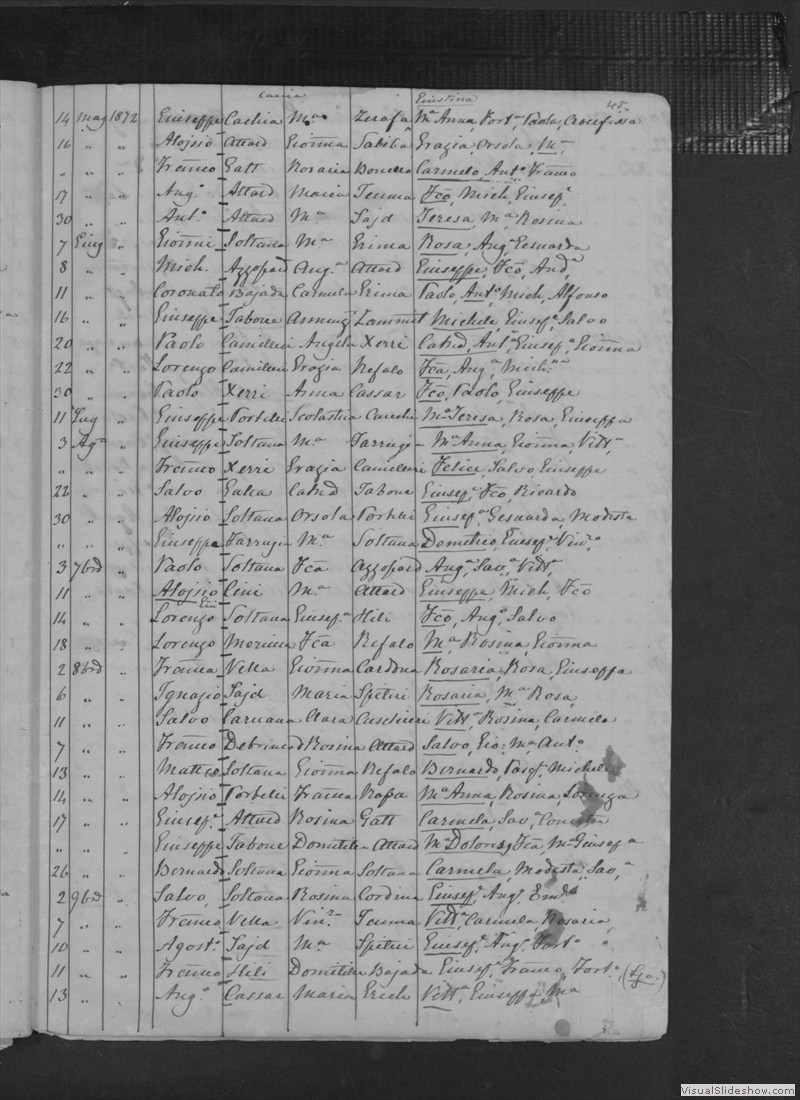 Giustina 45.
14 Mag 1872 Giuseppe Cachia Mª Zerafa Mª Anna, Fortª Paola, Crocifissa
16 " " Aloisio Attard Giōnna Saliba Grazia, Orsola, Mª
" " " Franco Gatt Rosaria Borelli Carmelo, Antº Franco
17 " " Angº Attard Maria Teuma Fcō, Mich, Giusefe
30 " " Antº Attard Mª Sajd Teresa, Mª Rosina
7 Giug " Giōnni Soltana Mª Grima Rosa, Angª Gesuarda
8 " " Mich. Azzopard Angª Attard Giuseppe, Fcō, Andª
11 " " Coronato Bajada Carmela Grima Paolo, Antº, Mich, Alfonso
16 " " Giuseppe Tabone Annunzª Zammit Michele, Giusefe, Salvo
20 " " Paolo Camilleri Angela Xerri Catrd, Antª, Giusefª, Giōnna
22 " " Lorenzo Camilleri Grazia Refalo Fcā, Angª, Michna
30 " " Paolo Xerri Anna Cassar Fcō, Paolo, Giuseppe
11 Lug " Giuseppe Portelli Scolastica Mª Teresa, Rosa, Giuseppa
3 Agº " Giuseppe Soltana Mª Farrugia Mª Anna, Giōnna, Vittª
" " " Franco Xerri Grazia Camilleri Felice, Salvo Giuseppe
22 " " Salvo Galea Catrd Tabone Giusefe, Fcō, Ricardo
30 " " Aloisio Soltana Orsola Portelli Giusefª, Gesuarda, Modesta
" " " Giuseppe Farrugia Mª Soltana Demetrio, Giusefe, Vinzo
3 7brē " Paolo Soltana Fcā Azzopard Angª, Savª, Vittª
11 " " Aloisio Cini Mª Attard Giuseppe, Mich, Fcō
14 " " Lorenzo Soltana Giusefª Hili Fcō, Angº, Salvo
18 " " Lorenzo Fcā Refalo Mª Rosina Giōnna
2 8brē " Franco Vella Giōnna Cardona Rosaria, Rosa, Giuseppa
6 " " Ignazio Sajd Maria Spiteri Rosaria, Mª Rosa,
11 " " Salvo Caruana Clara Cuschieri Vittª, Rosina, Carmela
7 " " Franco Debrincad Rosina Attard Salvo, Gio: Mª Antº
13 " " Matteo Soltana Giōnna Refalo Bernardo, Michele
14 " " Aloisio Portelli Franca Rapa Mª Anna, Rosina, Lorenza
17 " " Giusefe Attard Rosina Gatt Carmela, Savª, Concetta
" " " Giuseppe Tabone Domitilla Attard Mª Dolores, Fcā, Mª Giusefa
26 " " Bernardo Soltana Giōnna Soltana Carmela, Modesta, Savª
2 9brē " Salvo Soltana Rosina Cordina Giusefe, Angº, Emle
7 " " Franco Vella Vinza Teuma Vittª, Carmela Rosaria
10 " " Agostº Sajd Mª Spiteri Giusefª, Angª, Fortª
11 " " Franco Hili Domitilla Bajada Giusefª, Franca, Fortª
13 " " Angº Cassar Maria Grech Vittª, Giuseppa, Mª
VisualSlideshow.com